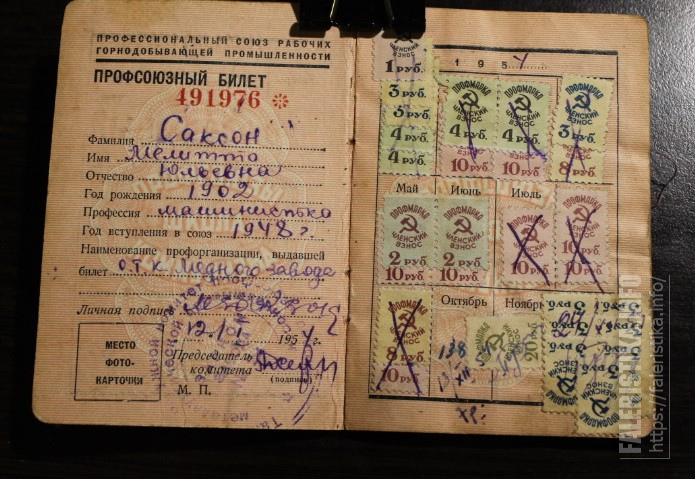 ПРОФЕССИОНАЛЬНЫЙ СОЮЗ РАБОЧИХ
ГОРНОДОБЫВАЮЩЕЙ ПРОМЫШЛЕННОСТИ
ПРОФСОЮЗНЫЙ БИЛЕТ
491976 *
Фамилия Саксон
Имя Мелитта
Отчество Юльевна
Год рождения 1902
Профессия машинистька
Год вступления в союз 1948 г.
Наименование профорганизации, выдавшей
билет О.Т.К. Медного завода
Личная подпись
12/I 1954 г.
МЕСТО
ФОТО-
КАРТОЧКИ
Председатель
комитета
(подпись)
М. П.
1954
ЧЛЕНСКИЙ
ВЗНОС
1 РУБ.
3 РУБ.
5 РУБ.
4 РУБ.
4 РУБ.
ПРОФМАРКА
ЧЛЕНСКИЙ
ВЗНОС
4 РУБ.
10 РУБ.
ПРОФМАРКА
ЧЛЕНСКИЙ
ВЗНОС
4 РУБ.
10 РУБ.
ПРОФМАРКА
ЧЛЕНСКИЙ
ВЗНОС
3 РУБ.
8 РУБ.
Май Июнь Июль
ПРОФМАРКА
ЧЛЕНСКИЙ
ВЗНОС
2 РУБ.
10 РУБ.
ПРОФМАРКА
ЧЛЕНСКИЙ
ВЗНОС
2 РУБ.
10 РУБ.
ПРОФМАРКА
ЧЛЕНСКИЙ
ВЗНОС
10 РУБ.
ПРОФМАРКА
ЧЛЕНСКИЙ
ВЗНОС
10 РУБ.
Октябрь Ноябрь
ПРОФМАРКА
ЧЛЕНСКИЙ
ВЗНОС
8 РУБ.
10 РУБ.
138
XII
20 РУБ.
3 РУБ.
3 РУБ.
3 РУБ.
3 РУБ.
3 РУБ.
ЧЛЕНСКИЙ
ПРОФМАРКА
FALERISTIKA.INFO
https://faleristika.info/